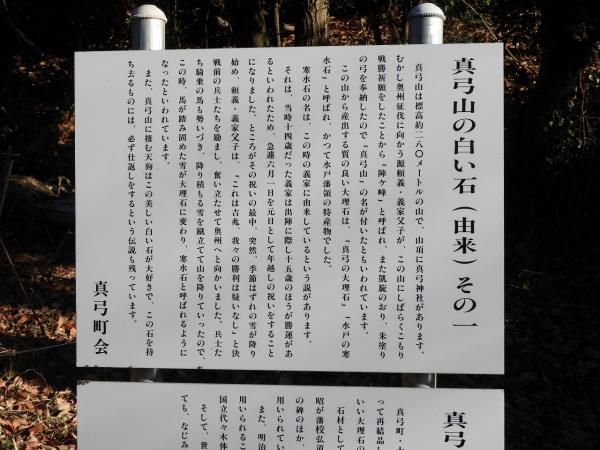 真弓山の白い石（由来）その一
真弓山は標高約二八〇メートルの山で、山頂に真弓神社があります。
むかし奥州征伐に向かう源頼義・義家父子が、この山にしばらくこもり
戦勝祈願をしたことから「陣ケ峰」と呼ばれ、また凱旋のおり、朱塗り
の弓を奉納したので「真弓山」の名が付いたともいわれています。
この山から産出する質の良い大理石は、「真弓の大理石」「水戸の寒
水石」と呼ばれ、かつて水戸藩領の特産物でした。
寒水石の名は、この時の義家に由来しているという説があります。
それは、当時十四歳だった義家は出陣に際し十五歳のほうが勝運があ
るといわれたため、急遽六月一日を元日として年越しの祝いをすること
になりました。ところがその祝いの最中、突然、季節はずれの雪が降り
始め、頼義・義家父子は、「これは吉兆、我々の勝利は疑いなし」と決
戦前の兵士たちを励まし、奮い立たせて奥州へと向かいました。兵士た
ち騎乗の馬も勢いづき、降り積もる雪を蹴立てて山を降りていったので、
この時、馬が踏み固めた雪が大理石に変わり、寒水石と呼ばれるように
なったといわれています。
また、真弓山に棲む天狗はこの美しい白い石が大好きで、この石を持
ち去るものには、必ず仕返しをするという伝説も残っています。
真弓町会
真弓
真弓町・
って再結晶し
いい大理石の
石材として
昭が藩校弘道
の碑のほか、
用いられてい
また、明治
用いられるこ
国立代々木体
そして、世
ても、なじみ